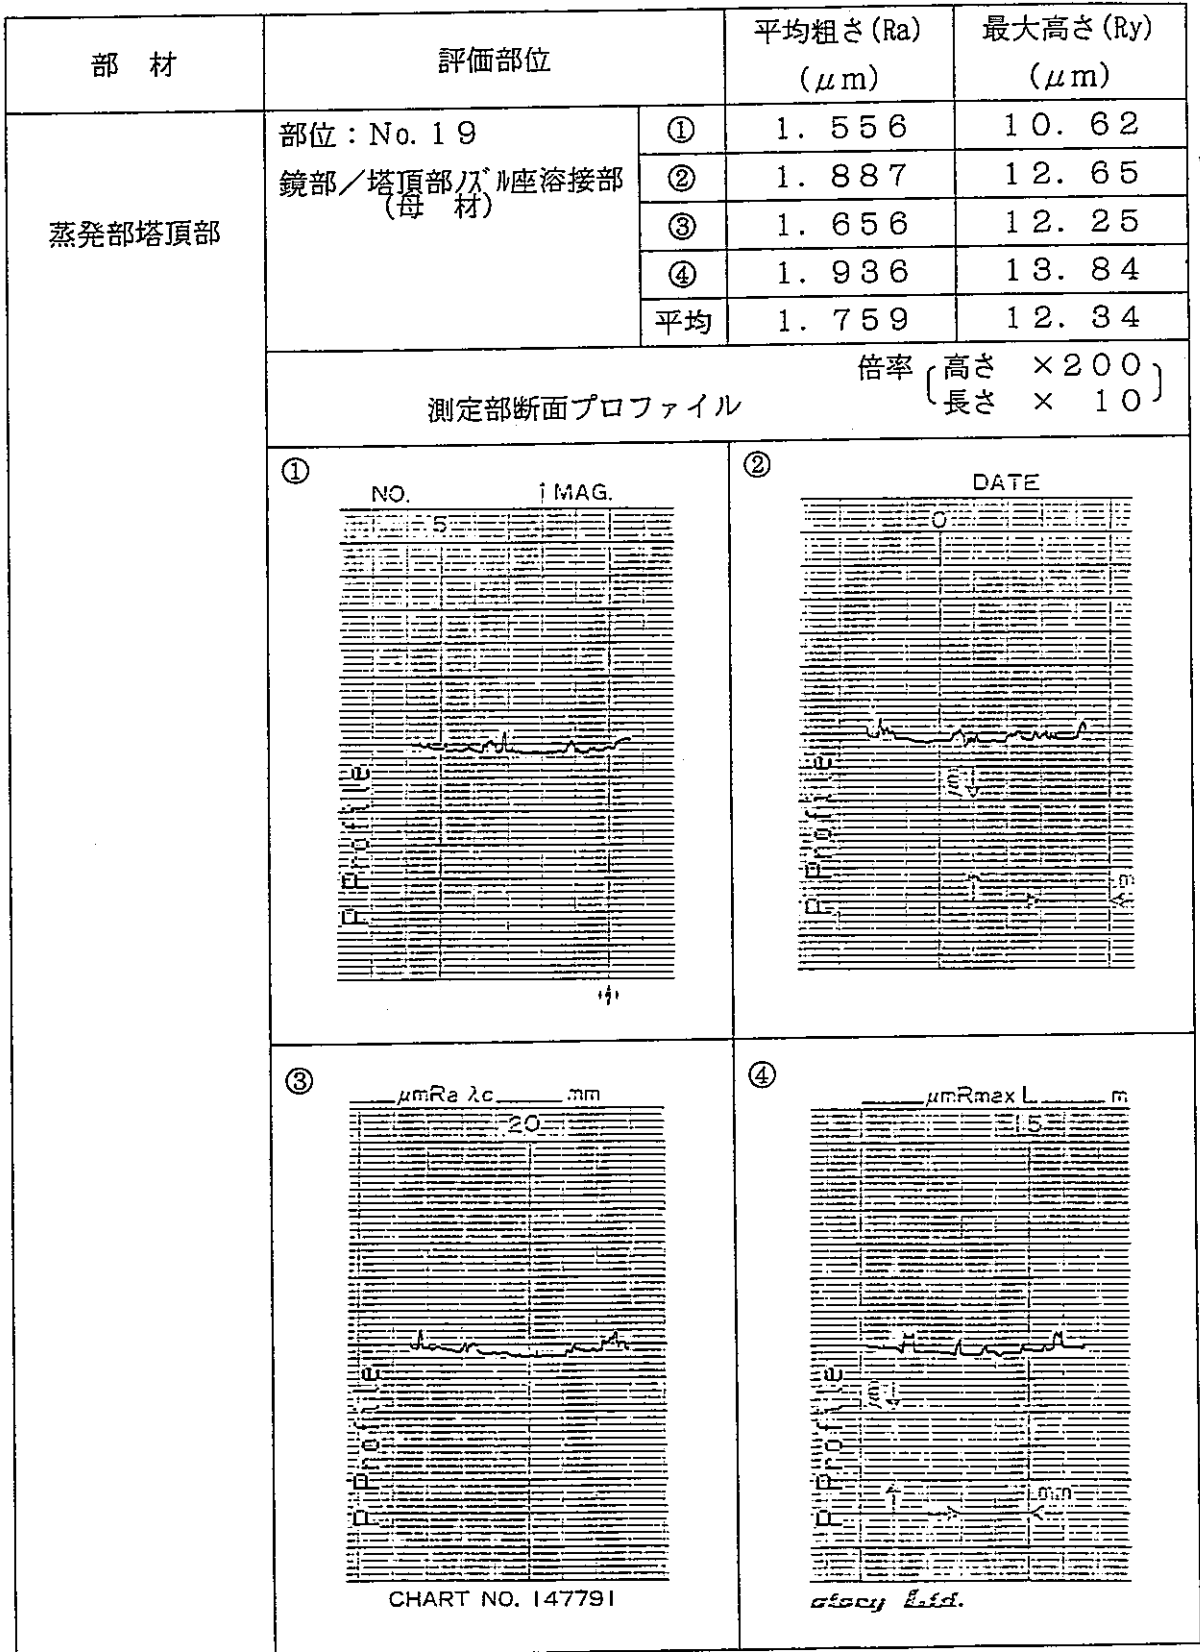 部 材 評価部位 平均粗さ(Ra) (μm) 最大高さ(Ry) (μm)
蒸発部塔頂部
部位:No.19
鏡部/塔頂部ノズル座溶接部
(母 材)
① 1.556 10.62
② 1.887 12.65
③ 1.656 12.25
④ 1.936 13.84
平均 1.759 12.34
測定部断面プロファイル
倍率 高さ ×200
長さ × 10
①
NO. MAG.
5
P Profile
②
DATE
0
P Profile
③
μmRa λc mm
20
P Profile
CHART NO. 147791
④
μmRmax L m
15
P Profile
mm
Ltd.